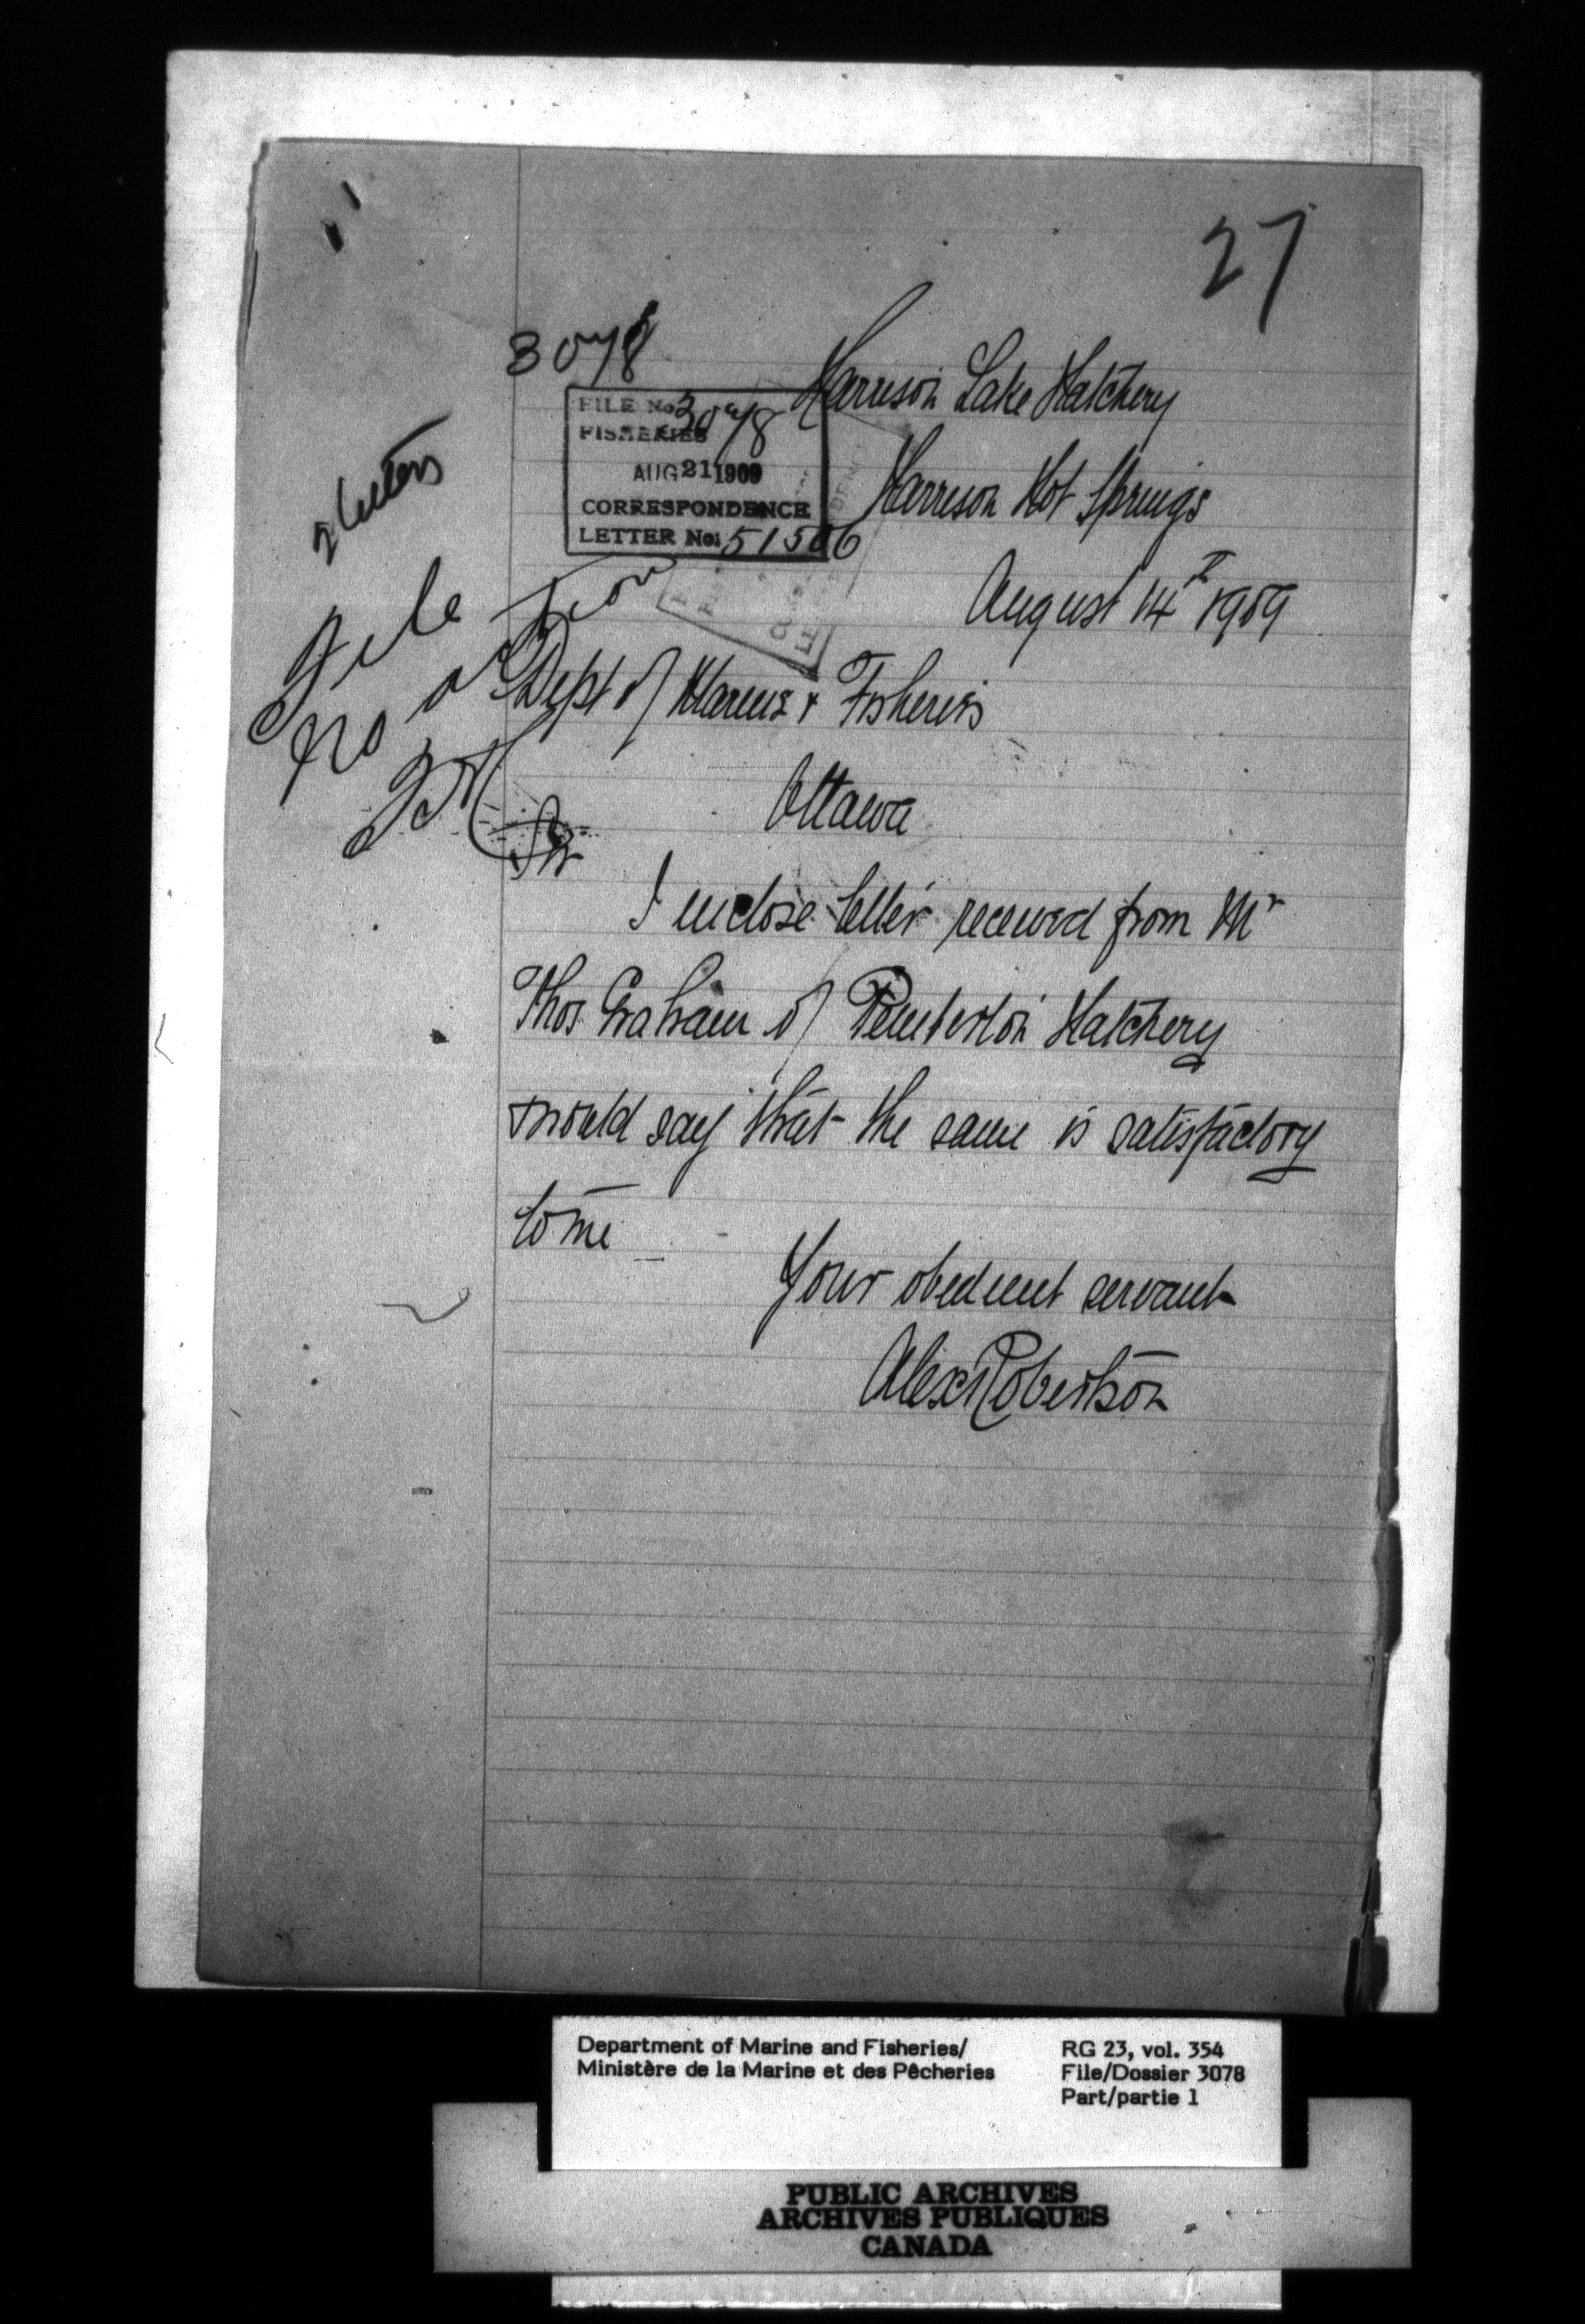 27
3078
Harrison Lake Hatchery
FILE No. 3078
FISHERIES
AUG 21 1909
CORRESPONDENCE
LETTER No. 51506
Harrison Hot Springs
August 14th 1909
2 letters
File
no action
Dept of Marine & Fisheries
Ottawa
Sir
I enclose letter received from Mr
Thos Graham of Pemberton Hatchery
would say that the same is satisfactory
to me
Your obedient servant
Alex Robertson
Department of Marine and Fisheries/
Ministère de la Marine et des Pêcheries
RG 23, vol. 354
File/Dossier 3078
Part/partie 1
PUBLIC ARCHIVES
ARCHIVES PUBLIQUES
CANADA